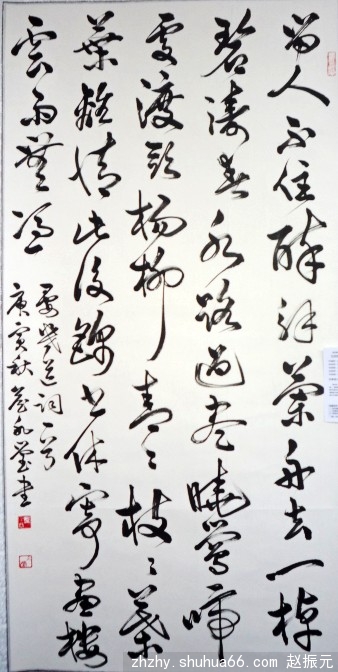 留人不住醉解蘭舟去一棹
碧濤春水路過盡曉鶯啼
處渡頭楊柳青々枝々葉
葉離情此後錦書休寄畫樓
雲雨無憑
晏幾道詞一首
庚寅秋 書
zhzhy.shuhua66.com 赵振元